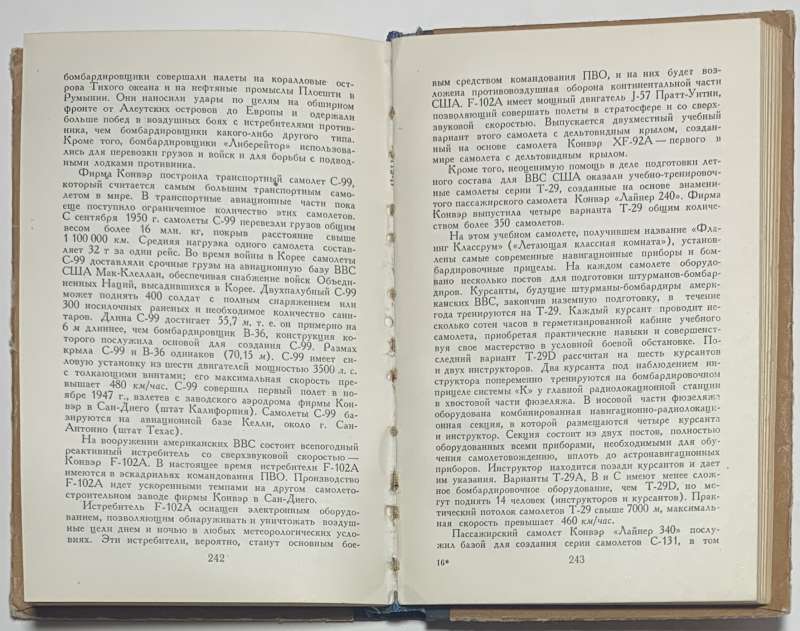 бомбардировщики совершали налеты на коралловые ост-
рова Тихого океана и на нефтяные промыслы Плоешти в
Румынии. Они наносили удары по целям на обширном
фронте от Алеутских островов до Европы и одержали
больше побед в воздушных боях с истребителями против-
ника, чем бомбардировщики какого-либо другого типа.
Кроме того, бомбардировщики «Либерейтор» использова-
лись для перевозки грузов и войск и для борьбы с подвод-
ными лодками противника.
Фирма Конвэр построила транспортный самолет С-99,
который считается самым большим транспортным само-
летом в мире. В транспортные авиационные части пока
еще поступило ограниченное количество этих самолетов.
С сентября 1950 г. самолеты С-99 перевезли грузов общим
весом более 16 млн. кг, покрыв расстояние свыше
1 100 000 км. Средняя нагрузка одного самолета состав-
ляет 32 т за один рейс. Во время войны в Корее самолеты
С-99 доставляли срочные грузы на авиационную базу ВВС
США Мак-Клеллан, обеспечивая снабжение войск Объеди-
ненных Наций, высадившихся в Корее. Двухпалубный С-99
может поднять 400 солдат с полным снаряжением или
300 носилочных раненых и необходимое количество сани-
таров. Длина С-99 достигает 55,7 м, т. е. он примерно на
6 м длиннее, чем бомбардировщик В-36, конструкция ко-
торого послужила основой для создания С-99. Размах
крыла С-99 и В-36 одинаков (70,15 м). С-99 имеет си-
ловую установку из шести двигателей мощностью 3500 л. с.
с толкающими винтами; его максимальная скорость пре-
вышает 480 км/час. С-99 совершил первый полет в но-
ябре 1947 г., взлетев с заводского аэродрома фирмы Кон-
вэр в Сан-Диего (штат Калифорния). Самолеты С-99 ба-
зируются на авиационной базе Келли, около г. Сан-
Антонио (штат Техас).
На вооружении американских ВВС состоит всепогодный
реактивный истребитель со сверхзвуковой скоростью —
Конвэр F-102A. В настоящее время истребители F-102A
имеются в эскадрильях командования ПВО. Производство
F-102A идет ускоренными темпами на другом самолето-
строительном заводе фирмы Конвэр в Сан-Диего.
Истребитель F-102A оснащен электронным оборудо-
ванием, позволяющим обнаруживать и уничтожать воздуш-
ные цели днем и ночью в любых метеорологических усло-
виях. Эти истребители, вероятно, станут основным бое-
242
вым средством командования ПВО, и на них будет воз-
ложена противовоздушная оборона континентальной части
США. F-102A имеет мощный двигатель J-57 Пратт-Уитни,
позволяющий совершать полеты в стратосфере и со сверх-
звуковой скоростью. Выпускается двухместный учебный
вариант этого самолета с дельтовидным крылом, создан-
ный на основе самолета Конвэр XF-92A — первого в
мире самолета с дельтовидным крылом.
Кроме того, неоценимую помощь в деле подготовки лет-
ного состава для ВВС США оказали учебно-тренировоч-
ные самолеты серии Т-29, созданные на основе знамени-
того пассажирского самолета Конвэр «Лайнер 240». Фирма
Конвэр выпустила четыре варианта Т-29 общим количе-
ством более 350 самолетов.
На этом учебном самолете, получившем название «Фла-
инг Классрум» («Летающая классная комната»), установ-
лены самые современные навигационные приборы и бом-
бардировочные прицелы. На каждом самолете оборудо-
вано несколько постов для подготовки штурманов-бомбар-
диров. Курсанты, будущие штурманы-бомбардиры амери-
канских ВВС, закончив наземную подготовку, в течение
года тренируются на Т-29. Каждый курсант проводит не-
сколько сотен часов в герметизированной кабине учебного
самолета, приобретая практические навыки и совершенст-
вуя свое мастерство в условной боевой обстановке. По-
следний вариант T-29D рассчитан на шесть курсантов
и двух инструкторов. Два курсанта под наблюдением ин-
структора попеременно тренируются на бомбардировочном
прицеле системы «К» у главной радиолокационной станции
в хвостовой части фюзеляжа. В носовой части фюзеляжа
оборудована комбинированная навигационно-радиолокаци-
онная секция, в которой размещаются четыре курсанта
и инструктор. Секция состоит из двух постов, полностью
оборудованных всеми приборами, необходимыми для обу-
чения самолетовождению, вплоть до астронавигационных
приборов. Инструктор находится позади курсантов и дает
им указания. Варианты Т-29А, В и С имеют менее слож-
ное бомбардировочное оборудование, чем T-29D, но мо-
гут поднять 14 человек (инструкторов и курсантов). Прак-
тический потолок самолетов Т-29 свыше 7000 м, максималь-
ная скорость превышает 460 км/час.
Пассажирский самолет Конвэр «Лайнер 340» послу-
жил базой для создания серии самолетов С-131, в том
16*
243